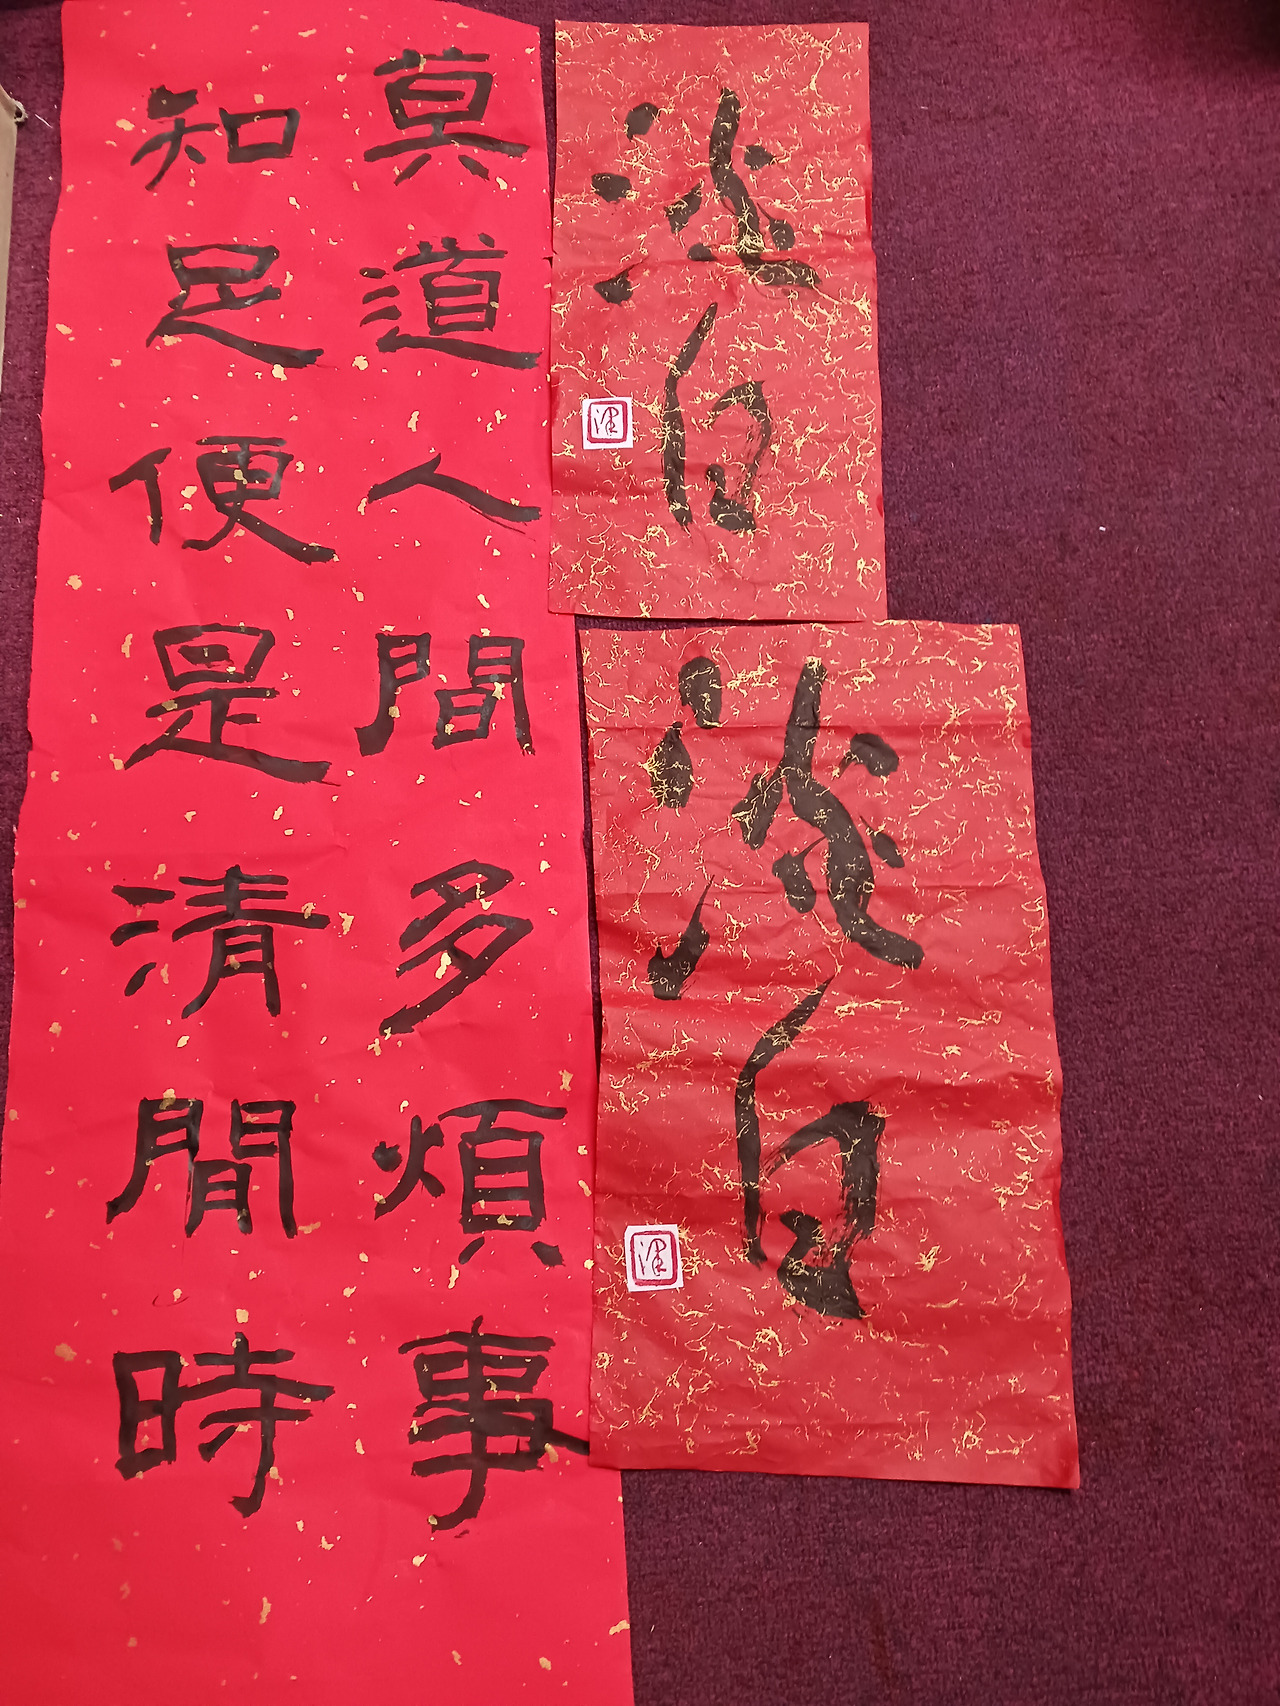 莫道人間多煩事
知足便是清閒時
淡白
淡白